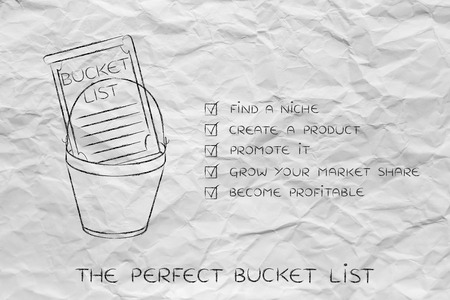 BUCKET
LIST
FIND A NICHE
CREATE A PRODUCT
PROMOTE IT
GROW YOUR MARKET SHARE
BECOME PROFITABLE
THE PERFECT BUCKET LIST